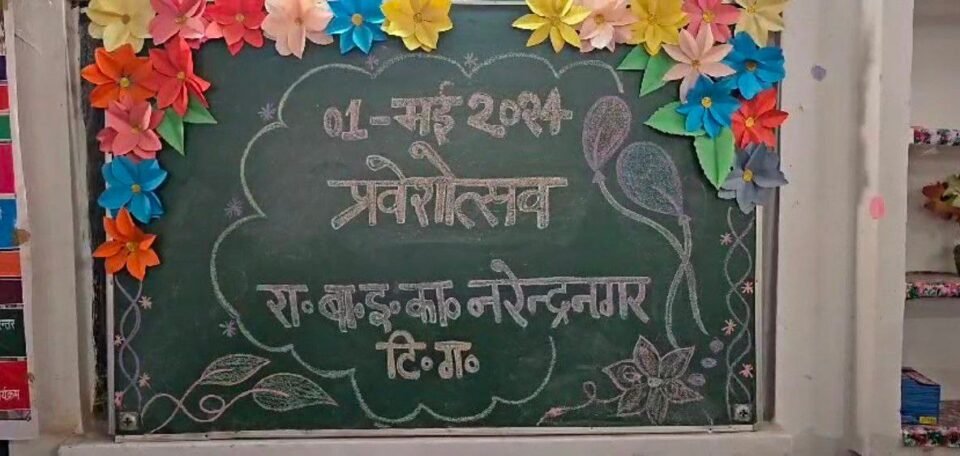 01-मई २०२4
प्रवेशोत्सव
रा॰बा॰इ॰का॰ नरेन्द्रनगर
टि॰ग॰